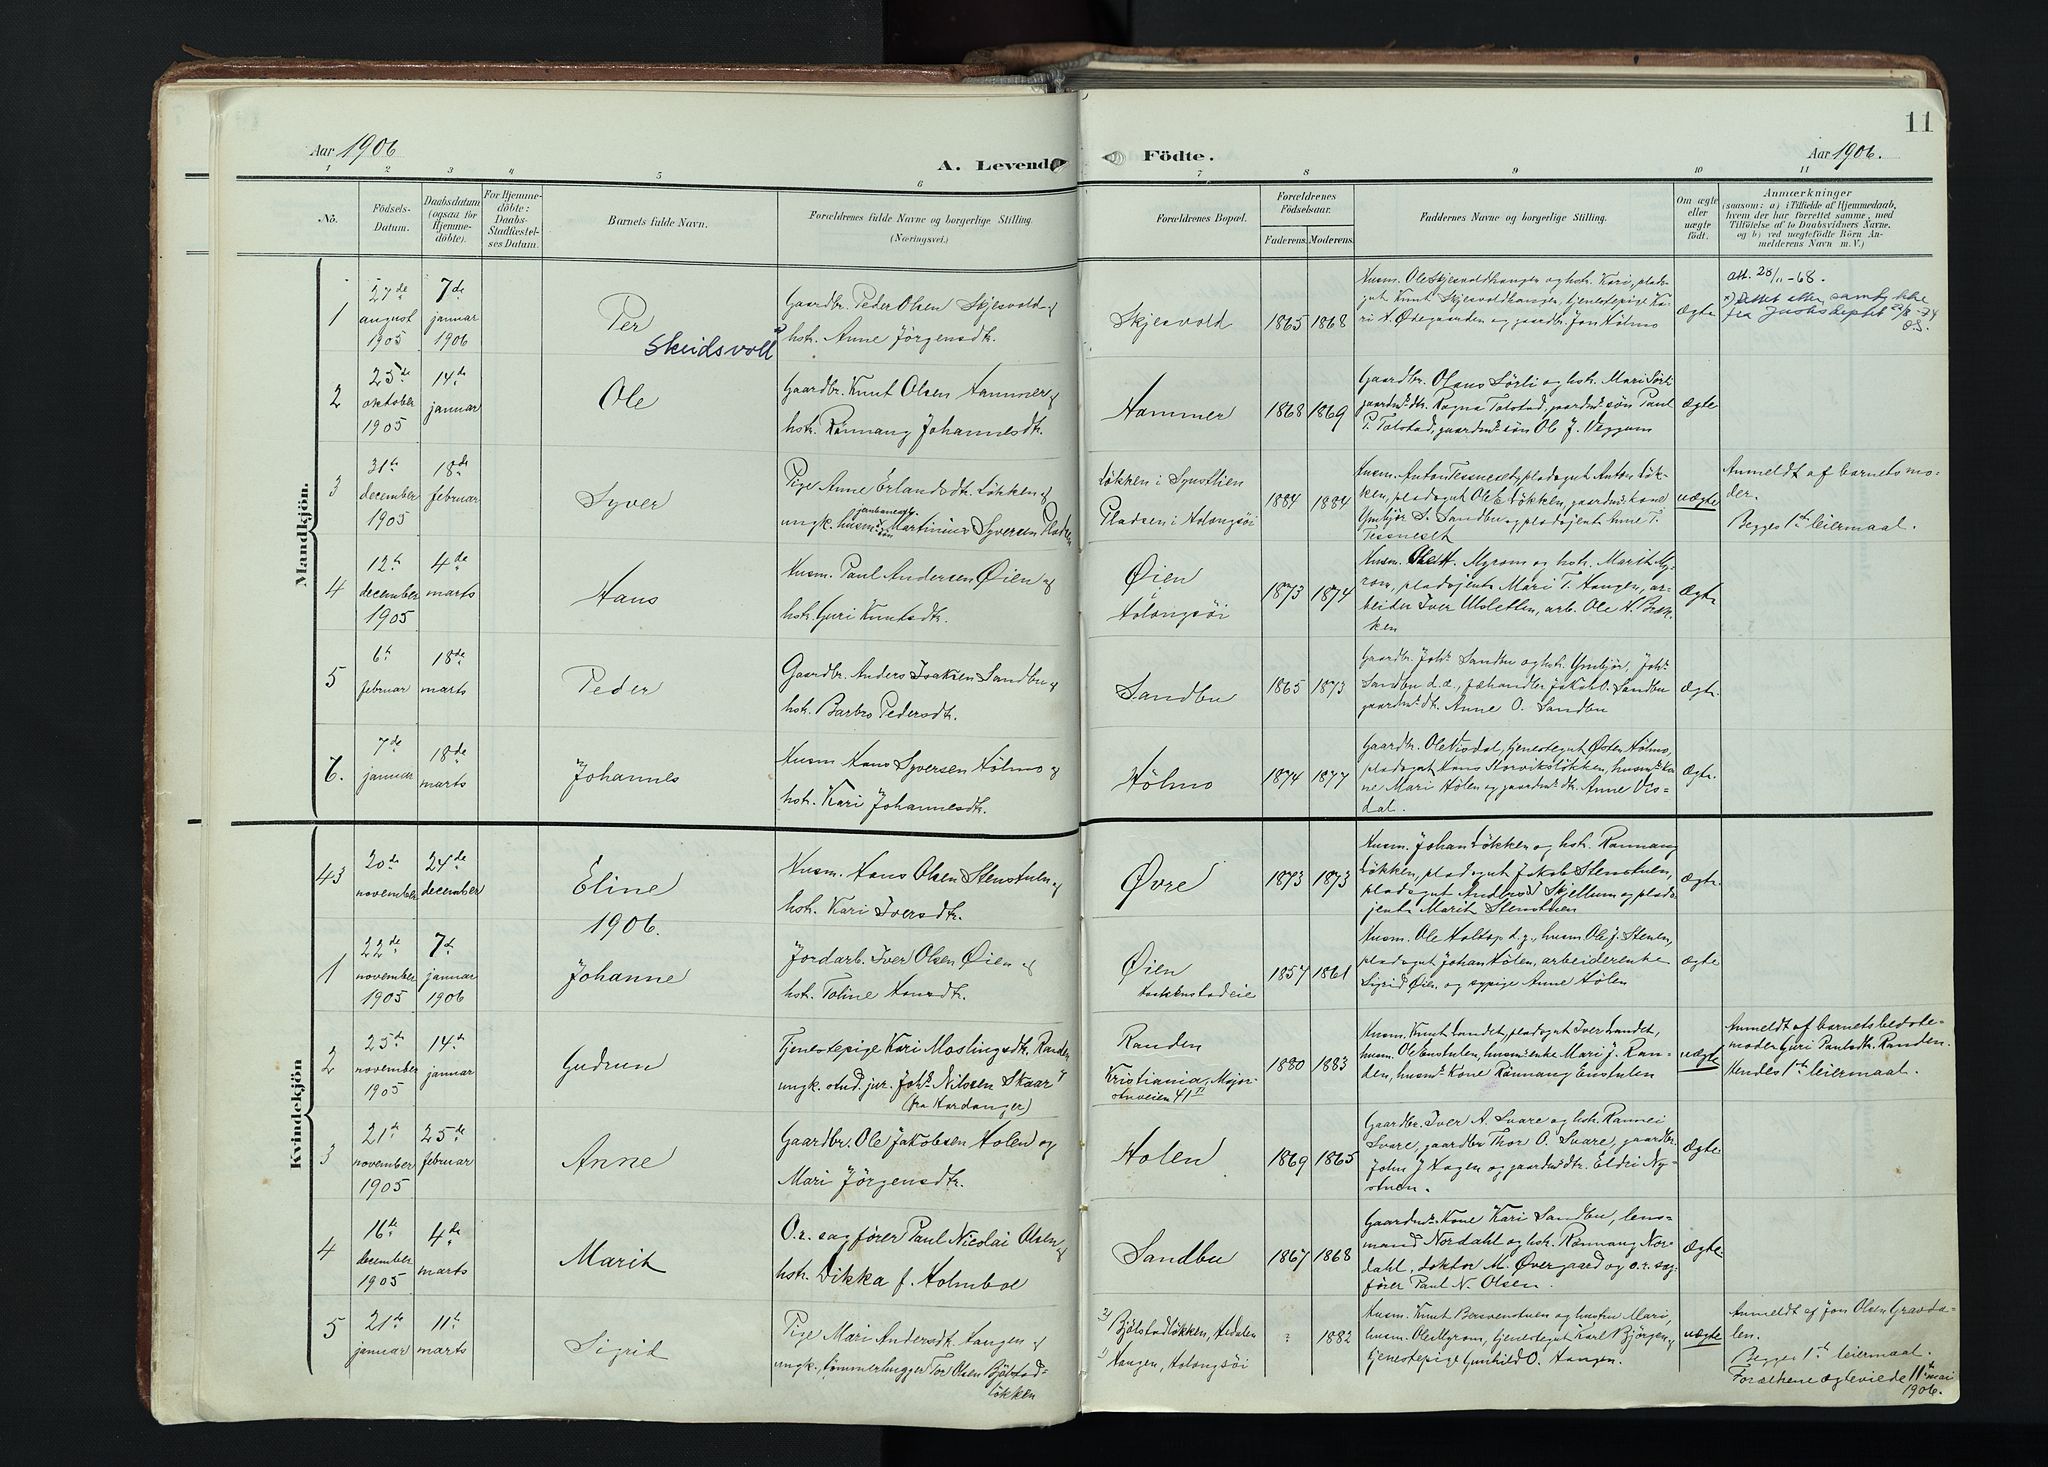 11
Aar 1906
A. Levende
Födte.
Aar 1906.
1 2 3 4 5 6 7 8 9 10 11
No.
Födsels-
Datum.
Daabsdatum
(ogsaa for
Hjemme-
döbte).
For Hjemme-
döbte:
Daabs-
Stadfæstel-
ses Datum.
Barnets fulde Navn.
Forældrenes fulde Navne og borgerlige Stilling.
(Næringsvei.)
Forældrenes Bopæl.
Forældrenes
Födselsaar.
Faderens. Moderens.
Faddernes Navne og borgerlige Stilling.
Om ægte
eller
uægte
födt.
Anmærkninger
(saasom: a) i Tilfælde af Hjemmedaab,
hvem der har forrettet samme, med
Tilföielse af to Daabsvidners Navne.
og b) ved uægtefödte Börn An-
melderens Navn m. V.)
Mandkjön.
1
27de
august
1905
7de
januar
1906
Per
Skeidsvoll
Gaardbr. Peder Olsen Skjesvold og
hstr. Anne Jörgensdtr.
Skjesvold
1865 1868
Husm. Ole Skjesvoldhaugen og hstr. Kari, plads-
gut Knut Skjesvoldhaugen, tjenestepige Ka-
ri A. Ödegaarden og gaardbr. Jon Hölmo
Ægte
att. 28/11-68.
2
25de
oktober
1905
14de
januar
Ole
Gaardbr. Knut Olsen Hammer og
hstr. Rannaug Johannesdtr.
Hammer
1868 1869
Gaardbr. Olaus Sörli og hstr. Mari Sörli
gaardms dtr. Ragna Tolstad, gaardms sön Paul
P. Tolstad, gaardms sön Ole J. Veggum
ægte
3
31te
december
1905
18de
februar
Syver
Pige Anne Erlandsdtr. Lökken og
ungk. husm. sön Martinius Syversen Pladsen
Lökken i
Pladsen i Holongsöi
1884 1884
Husm. Anton Tessneset, pladsgut Anton Lök-
ken, pladsgut Ole E. Lökken, gaardms kone
Ymbjör S. Sandbu og pladsjente Anne T.
Tessneset
uægte
Anmeldt af barnets mo-
der.
Begges 1ste leiermaal.
4
12te
december
1905
4de
marts
Hans
Husm. Paul Andersen Öien og
hstr. Guri Knutsdtr.
Öien
Holongsöi
1873 1874
Husm. Ole H. Myrom og hstr. Marit My-
rom, pladsjente Mari T. Haugen, ar-
beider Iver Usletten, arb. Ole H. Bræk-
ken
Ægte
5
6te
februar
18de
marts
Peder
Gaardbr. Anders Isaksen Sandbu og
hstr. Barbro Pedersdtr.
Sandbu
1865 1873
Gaardbr. Johs. Sandbu og hstr. Ymbjör, Johs.
Sandbu d.æ., fæhandler Jakob O. Sandbu
gaardms dtr. Anne O. Sandbu
Ægte
6.
7de
januar
18de
marts
Johannes
Husm Hans Syversen Hölmo og
hstr. Kari Johannesdtr.
Hölmo
1874 1877
Gaardbr. Ole Visdal, tjenestegut Östen Hölmo,
pladsgut Hans Storvikslökken, husms ko-
ne Mari Hölen og gaardms dtr. Anne Vis-
dal.
Ægte.
Kvindekjön
43
20de
november
24de
december
Eline
Husm. Hans Olsen Stenstulen og
hstr. Kari Iversdtr.
Övre
1873 1873
Husm. Johan Lökken og hstr. Rannaug
Lökken, pladsgut Jakob Stenstuen,
pladsgut Anders Skjellum og plads-
jente Marit Stenstuen
Ægte
1906.
1
22de
november
1905
7de
januar
1906
Johanne
Jordarb. Iver Olsen Öien og
hstr. Toline Hansdtr.
Öien
1857 1861
Husm. Ole Holtop d.y., husm. Ole J. Stenen,
pladsgut Johan Hölen, arbeiderenke
Sigrid Öien og sypige Anne Hölen
Ægte
2
25de
november
1905
14de
januar
Gudrun
Tjenestepige Kari Maslingsdtr. Randen
ungk. stud. jur. Johs. Nilsen Skaar
(fra Hardanger)
Randen
Kristiania, Major-
stuveien 41 II
1880 1883
Husm. Knut Sandet, pladsgut Iver Sandet,
husm. Ole Enstulen, husms enke Mari J. Ran-
den, husms kone Rannaug Enstulen
uægte
Anmeldt af barnets bedste-
moder Guri Paulsdtr. Randen.
Hendes 1ste leiermaal.
3
21de
november
1905
25de
februar
Anne
Gaardbr. Ole Jakobsen Holen og
Mari Jörgensdtr.
Holen
1869 1865
Gaardbr. Iver A. Svare og hstr. Rannei
Svare, gaardbr Thor O. Svare, gaardbr.
John J Hagen og gaardms dtr. Eldri Ny-
stuen.
Ægte
4
16de
december
1905
4de
marts
Marit
O.r. sagförer Paul Nicolai Olsen og
hstr. Dikka f. Holmboe
Sandbu
1867 1868
Gaardms kone Kari Sandbu, lens-
mand Nordahl og hstr. Rannaug Nor-
dahl, doktor M. Övergaard og o.r. sag-
förer Paul N. Olsen.
Ægte
5
21de
januar
11te
marts
Sigrid
Pige Mari Andersdtr. Haugen og
ungk. tömmerhugger Tor Olsen Bjölstad-
lökken
2) Bjölstadlökken, Hedalen
1) Haugen, Holongsöi
? 1882
Husm. Knut Basvenstuen og hustru Mari,
husm. Ole Myrom, tjenestegut Karl Björgen og
tjenestepige Gunhild O. Haugen.
uægte
Anmeldt af Jon Olsen Gravda-
len.
Begges 1ste leiermaal.
Forældrene ægteviede 11te mai
1906.